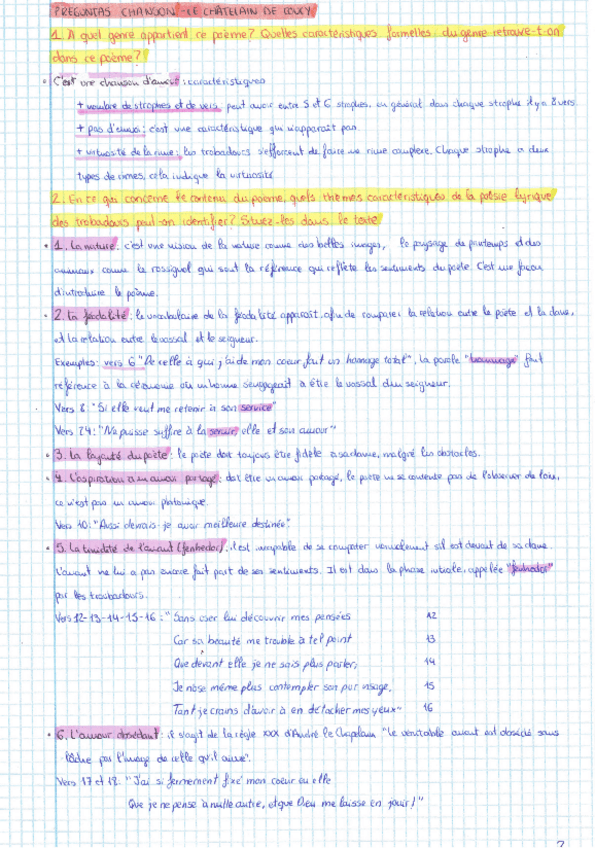 PREGUNTAS CHANSON - LE CHÂTELAIN DE COUCY
1. A quel genre appartient ce poème? Quelles caractéristiques formelles du genre retrouve-t-on
dans ce poème?
• C'est une chanson d'amour: caractéristiques
+ nombre de strophes et de vers: peut avoir entre 5 et 6 strophes, en général dans chaque strophe il y a 8 vers
+ pas d'envoi: c'est une caractéristique qui n'apparaît pan
+ virtuosité de la rime: les trobadours s'efforcent de faire une rime complexe. Chaque strophe a deux
types de rimes, cela indique la virtuosité
2. En ce qui concerne le contenu du poème, quels thèmes caractéristiques de la poésie lyrique
des trobadours peut-on identifier? Situez-les dans le texte
• 1. La nature: c'est une vision de la nature comme des belles images, le paysage du printemps et des
animaux comme le rossignol qui sont la référence qui reflète les sentiments du poète. C'est une façon
d'introduire le poème.
• 2. La féodalité: le vocabulaire de la féodalité apparaît, afin de comparer la relation entre le poète et la dame,
et la relation entre le vassal et le seigneur.
Exemples: vers 6 "De celle à qui j'ai de mon coeur fait un homage total", la parole "hommage" fait
référence à la cérémonie où un homme s'engageait à être le vassal d'un seigneur.
Vers 8: "Si elle veut me retenir à son service"
Vers 24: "Ne puisse suffire à la servir, elle et son amour"
• 3. La loyauté du poète: le poète doit toujours être fidèle à sa dame, malgré les obstacles.
• 4. L'aspiration à un amour partagé: doit être un amour partagé, le poète ne se contente pas de l'observer de loin,
ce n'est pas un amour platonique.
Vers 10: "Aussi devrais-je avoir meilleure destinée".
• 5. La timidité de l'amant (fenhedor): il est incapable de se comporter normalement s'il est devant de sa dame.
L'amant ne lui a pas encore fait part de ses sentiments. Il est dans la phase initiale, appelée "fenhedor"
par les troubadours.
Vers 12-13-14-15-16: "Sans oser lui découvrir mes pensées 12
Car sa beauté me trouble à tel point 13
Que devant elle je ne sais plus parler; 14
Je n'ose même plus contempler son pur visage, 15
Tant je crains d'avoir à en détacher mes yeux" 16
• 6. L'amour obsédant: il s'agit de la règle XXX d'André le Chapelain "Le véritable amant est obsédé sans
relâche par l'image de celle qu'il aime".
Vers 17 et 18: "J'ai si fermement fixé mon coeur en elle
Que je ne pense à nulle autre, et que Dieu me laisse en jouir!"